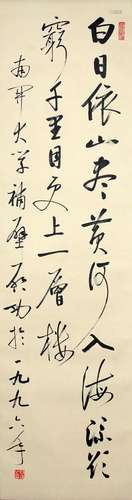 白日依山尽黄河入海流欲
窮千里目更上一層楼
南开大学補壁启功於一九九六年